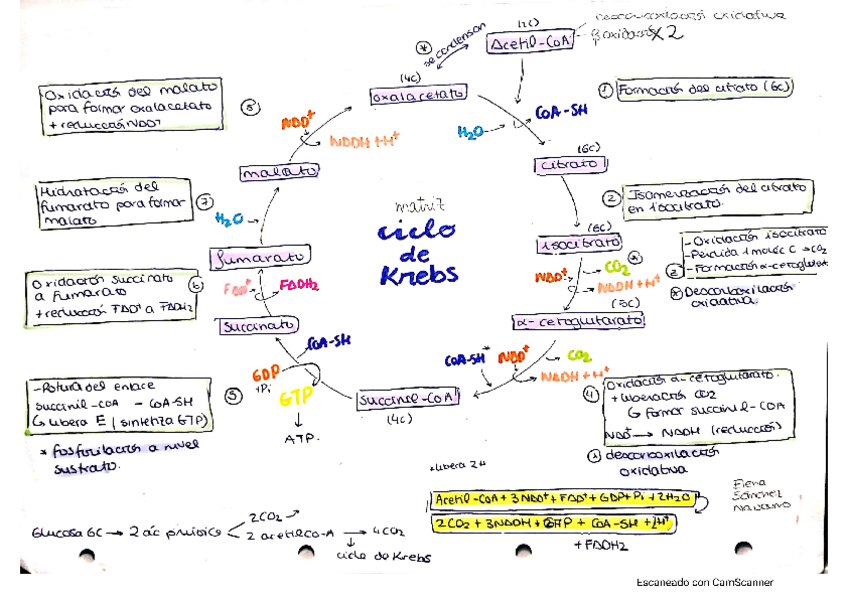 descarboxilación oxidativa
βoxidación x2
(2C)
Acetil-CoA
se condensan
(4C)
oxalacetato
① Formación del citrato (6C)
H₂O
CoA-SH
(6C)
citrato
② Isomerización del citrato
en isocitrato.
(6C)
isocitrato
- Oxidación isocitrato
- Pérdida 1 moléc C → CO₂
- Formación α-cetoglutar
Descarboxilación
oxidativa.
NAD⁺
CO₂
NADH + H⁺
(5C)
α-cetoglutarato
CoA-SH
NAD⁺
CO₂
NADH + H⁺
④ Oxidación α-cetoglutarato.
+ liberación CO2
↳ formar succinil-CoA
NAD⁺ → NADH (reducción)
descarboxilación
oxidativa
Succinil-CoA
(4C)
CoA-SH
GDP
+Pi
GTP
ATP.
⑤ - Rotura del enlace
succinil-CoA - CoA-SH
↳ libera E (sintetiza GTP)
* fosforilación a nivel
sustrato.
Succinato
FAD⁺
FADH₂
⑥ Oxidación succinato
a fumarato
+ reducción FAD⁺ a FADH₂
fumarato
H₂O
⑦ Hidratación del
fumarato para formar
malato
malato
NAD⁺
NADH + H⁺
⑧ Oxidación del malato
para formar oxalacetato
+ reducción NAD⁺
matriz
ciclo
de
Krebs
*libera 2H
Acetil-CoA + 3NAD⁺ + FAD⁺ + GDP + Pi + 2H₂O
2CO₂ + 3NADH + GTP + CoA-SH + 2H⁺
+ FADH2
Elena
Sánchez
Navarro
Glucosa 6C → 2 ác pirúvico
2CO₂ →
2 acetilCo-A → 4CO₂
ciclo de Krebs
Escaneado con CamScanner